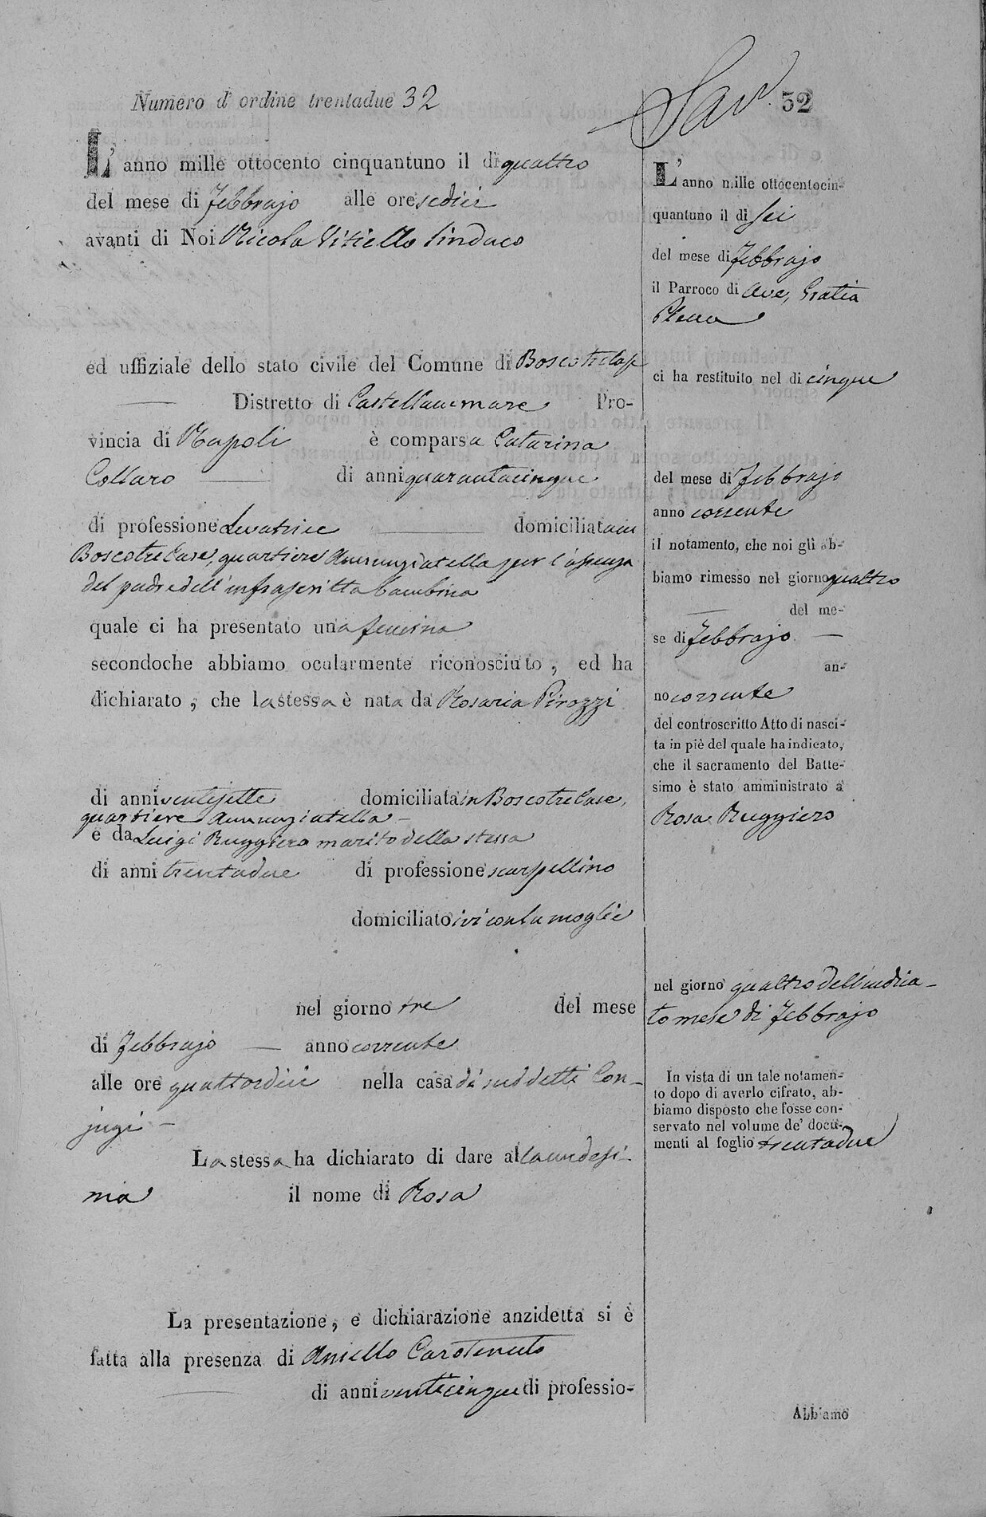 Numero d'ordine trentadue 32
L'anno mille ottocento cinquantuno il dì quattro
del mese di Febbrajo alle ore sedici
avanti di Noi Nicola Vitiello Sindaco
ed uffiziale dello stato civile del Comune di Boscotrecase
Distretto di Castellammare Pro-
vincia di Napoli è comparsa Catarina
Collaro di anni quarantacinque
di professione Levatrice domiciliata in
Boscotrecase, quartiere Annunziatella per l'assenza
del padre dell'infrascritta bambina
quale ci ha presentato una femina
secondoche abbiamo ocularmente riconosciuto, ed ha
dichiarato, che la stessa è nata da Rosaria Pirozzi
di anni ventisette domiciliata in Boscotrecase,
quartiere Annunziatella
e da Luigi Ruggiero marito della stessa
di anni trentadue di professione scarpellino
domiciliato ivi con la moglie
nel giorno tre del mese
di Febbrajo anno corrente
alle ore quattordici nella casa di suddetti Con-
jugi
La stessa ha dichiarato di dare alla medesi-
ma il nome di Rosa
La presentazione, e dichiarazione anzidetta si è
fatta alla presenza di Aniello Carotenuto
di anni venticinque di professio-
32
L'anno mille ottocentocin-
quantuno il dì sei
del mese di Febbrajo
il Parroco di Ave, Gratia
Plena
ci ha restituito nel dì cinque
del mese di Febbrajo
anno corrente
il notamento, che noi gli ab-
biamo rimesso nel giorno quattro
del me-
se di Febbrajo
an-
no corrente
del controscritto Atto di nasci-
ta in piè del quale ha indicato,
che il sacramento del Batte-
simo è stato amministrato a
Rosa Ruggiero
nel giorno quattro dell'indica-
to mese di Febbrajo
In vista di un tale notamen-
to dopo di averlo cifrato, ab-
biamo disposto che fosse con-
servato nel volume de' docu-
menti al foglio trentadue
Abbiamo